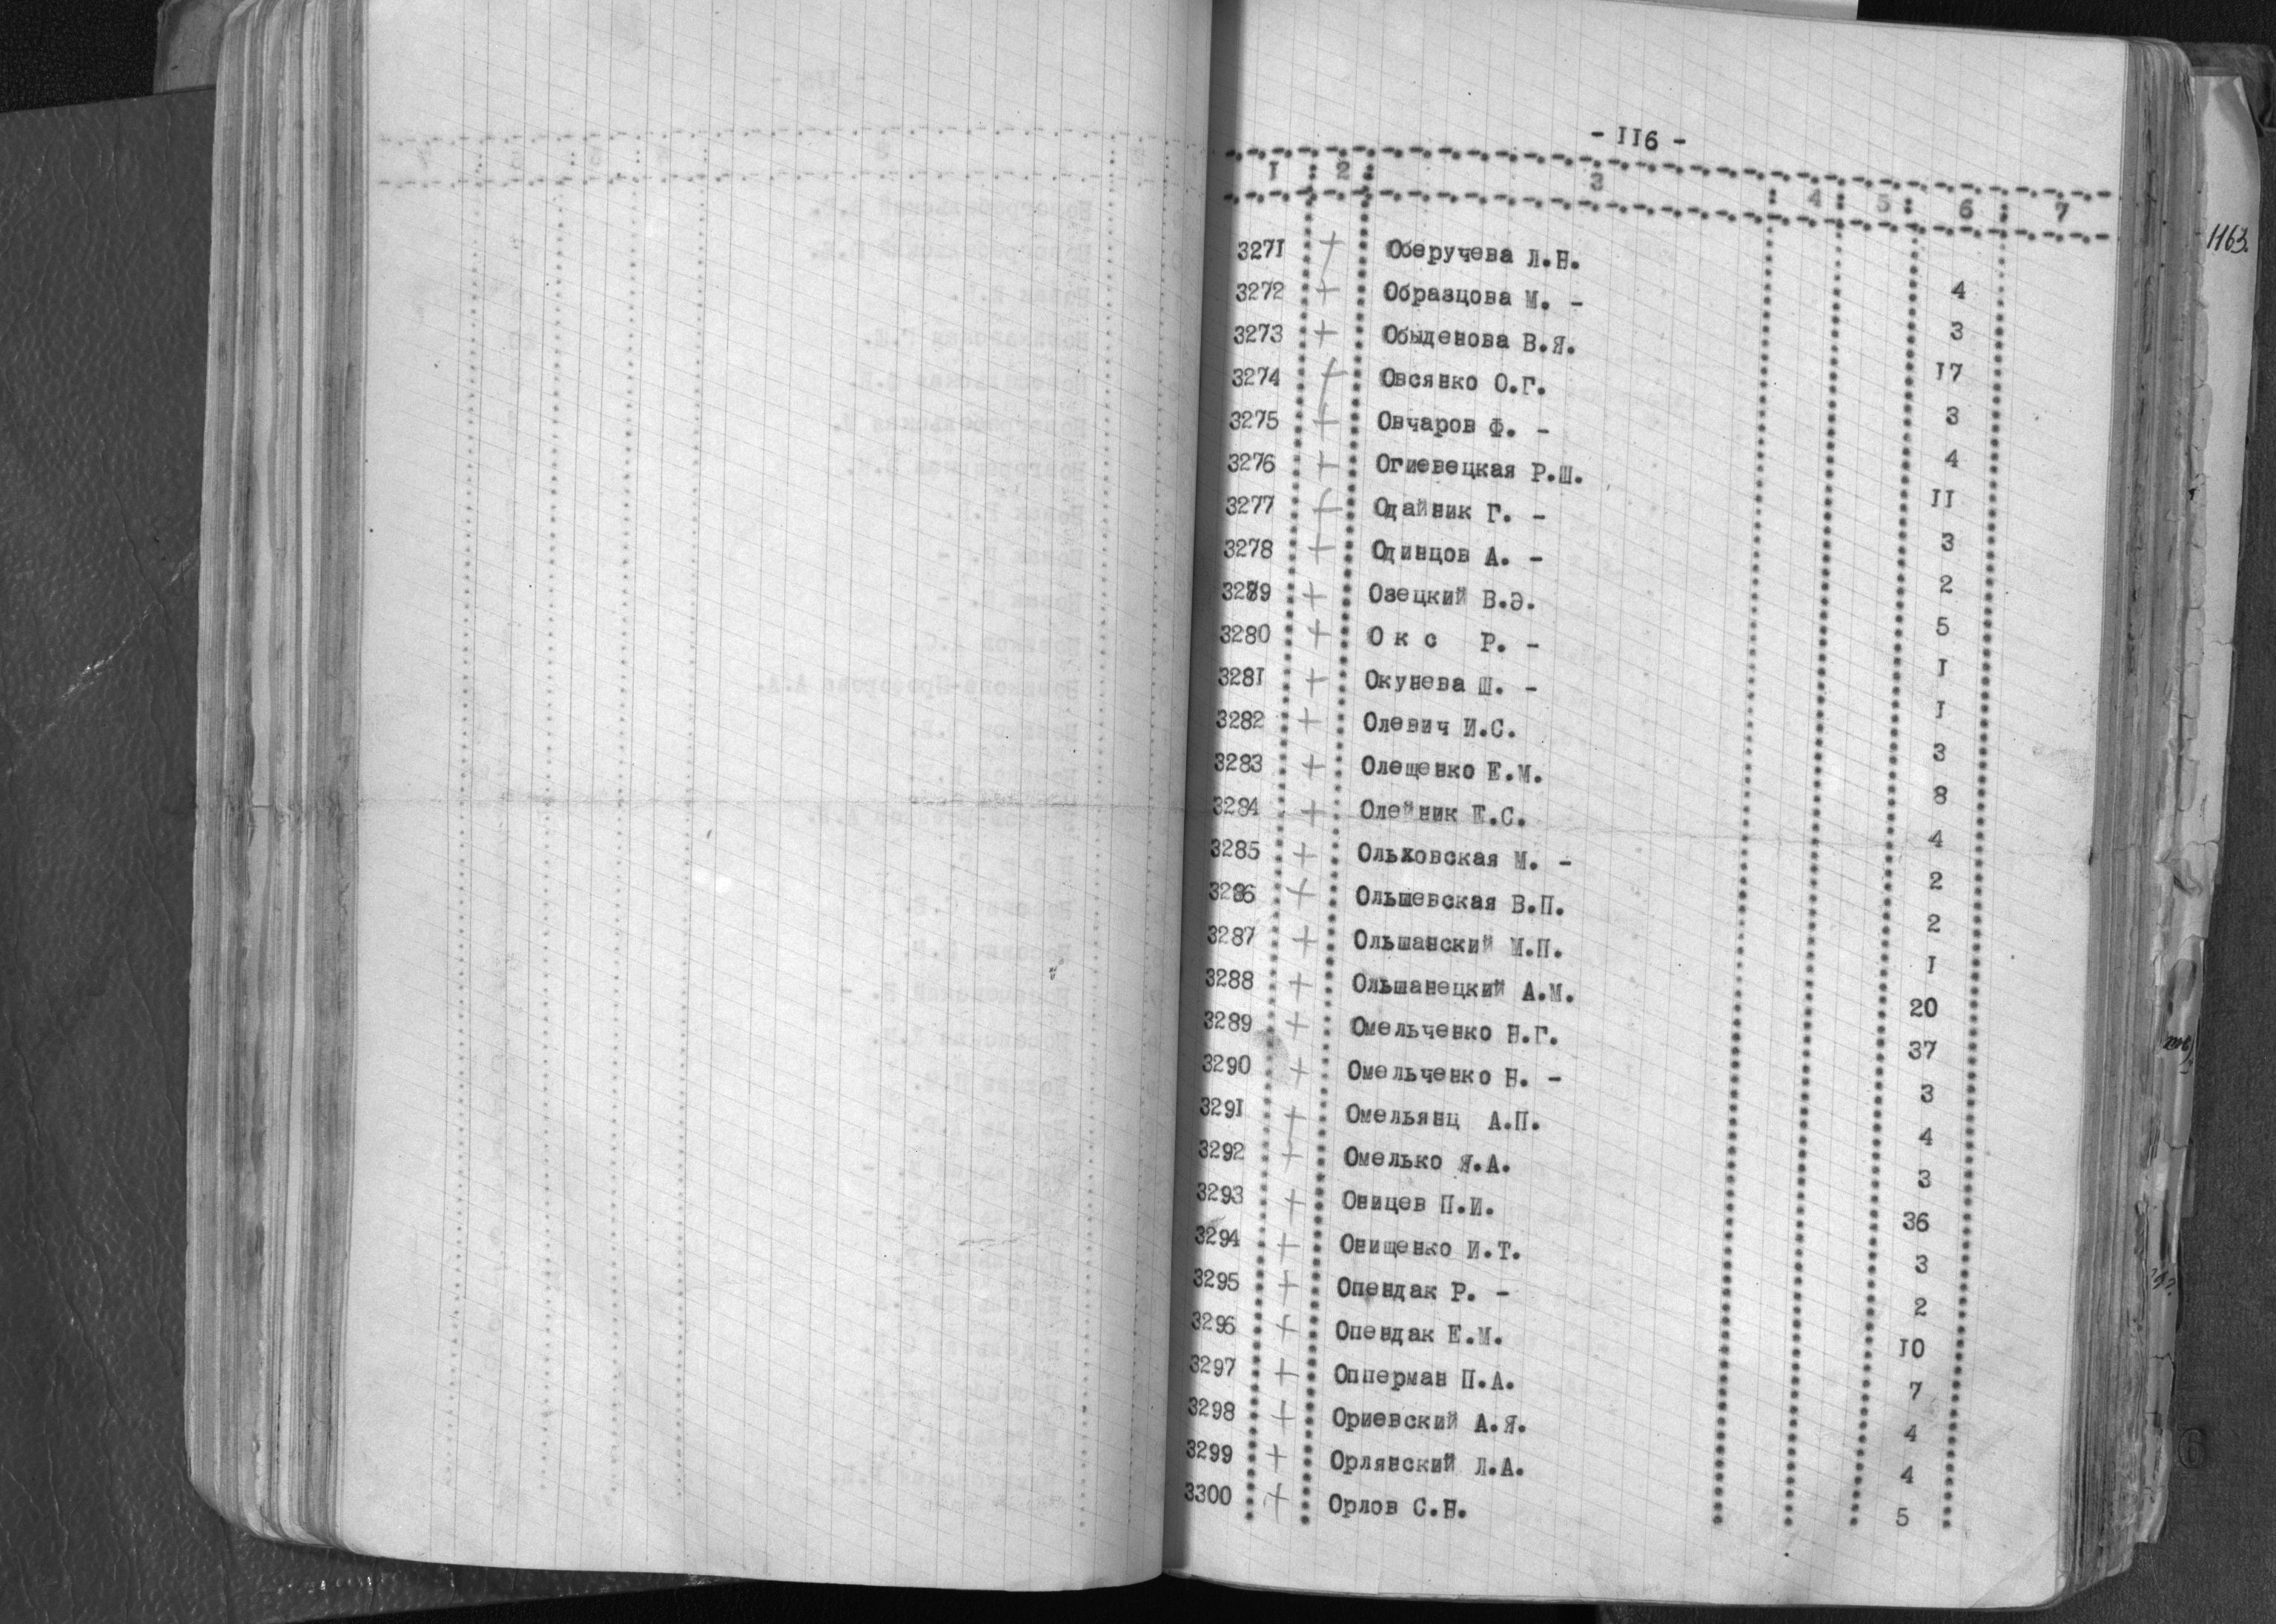 - II6 -
I : 2 : 3 : 4 : 5 : 6 : 7
1163.
327I + Оберучева Л.Н. 4
3272 + Образцова М. - 3
3273 + Обыденова В.Я. I7
3274 + Овсянко О.Г. 3
3275 + Овчаров Ф. - 4
3276 + Огиевецкая Р.Ш. II
3277 + Одайник Г. - 3
3278 + Одинцов А. - 2
3279 + Озецкий В.Э. 5
3280 + О к с Р. - I
328I + Окунева Ш. - I
3282 + Олевич И.С. 3
3283 + Олещенко Е.М. 8
3284 + Олейник Е.С. 4
3285 + Ольховская М. - 2
3286 + Ольшевская В.П. 2
3287 + Ольшанский М.П. I
3288 + Ольшанецкий А.М. 20
3289 + Омельченко Н.Г. 37
3290 + Омельченко Н. - 3
329I + Омельянц А.П. 4
3292 + Омелько Я.А. 3
3293 + Оницев П.И. 36
3294 + Онищенко И.Т. 3
3295 + Опендак Р. - 2
3296 + Опендак Е.М. I0
3297 + Опперман П.А. 7
3298 + Ориевский А.Я. 4
3299 + Орлянский Л.А. 4
3300 + Орлов С.Н. 5